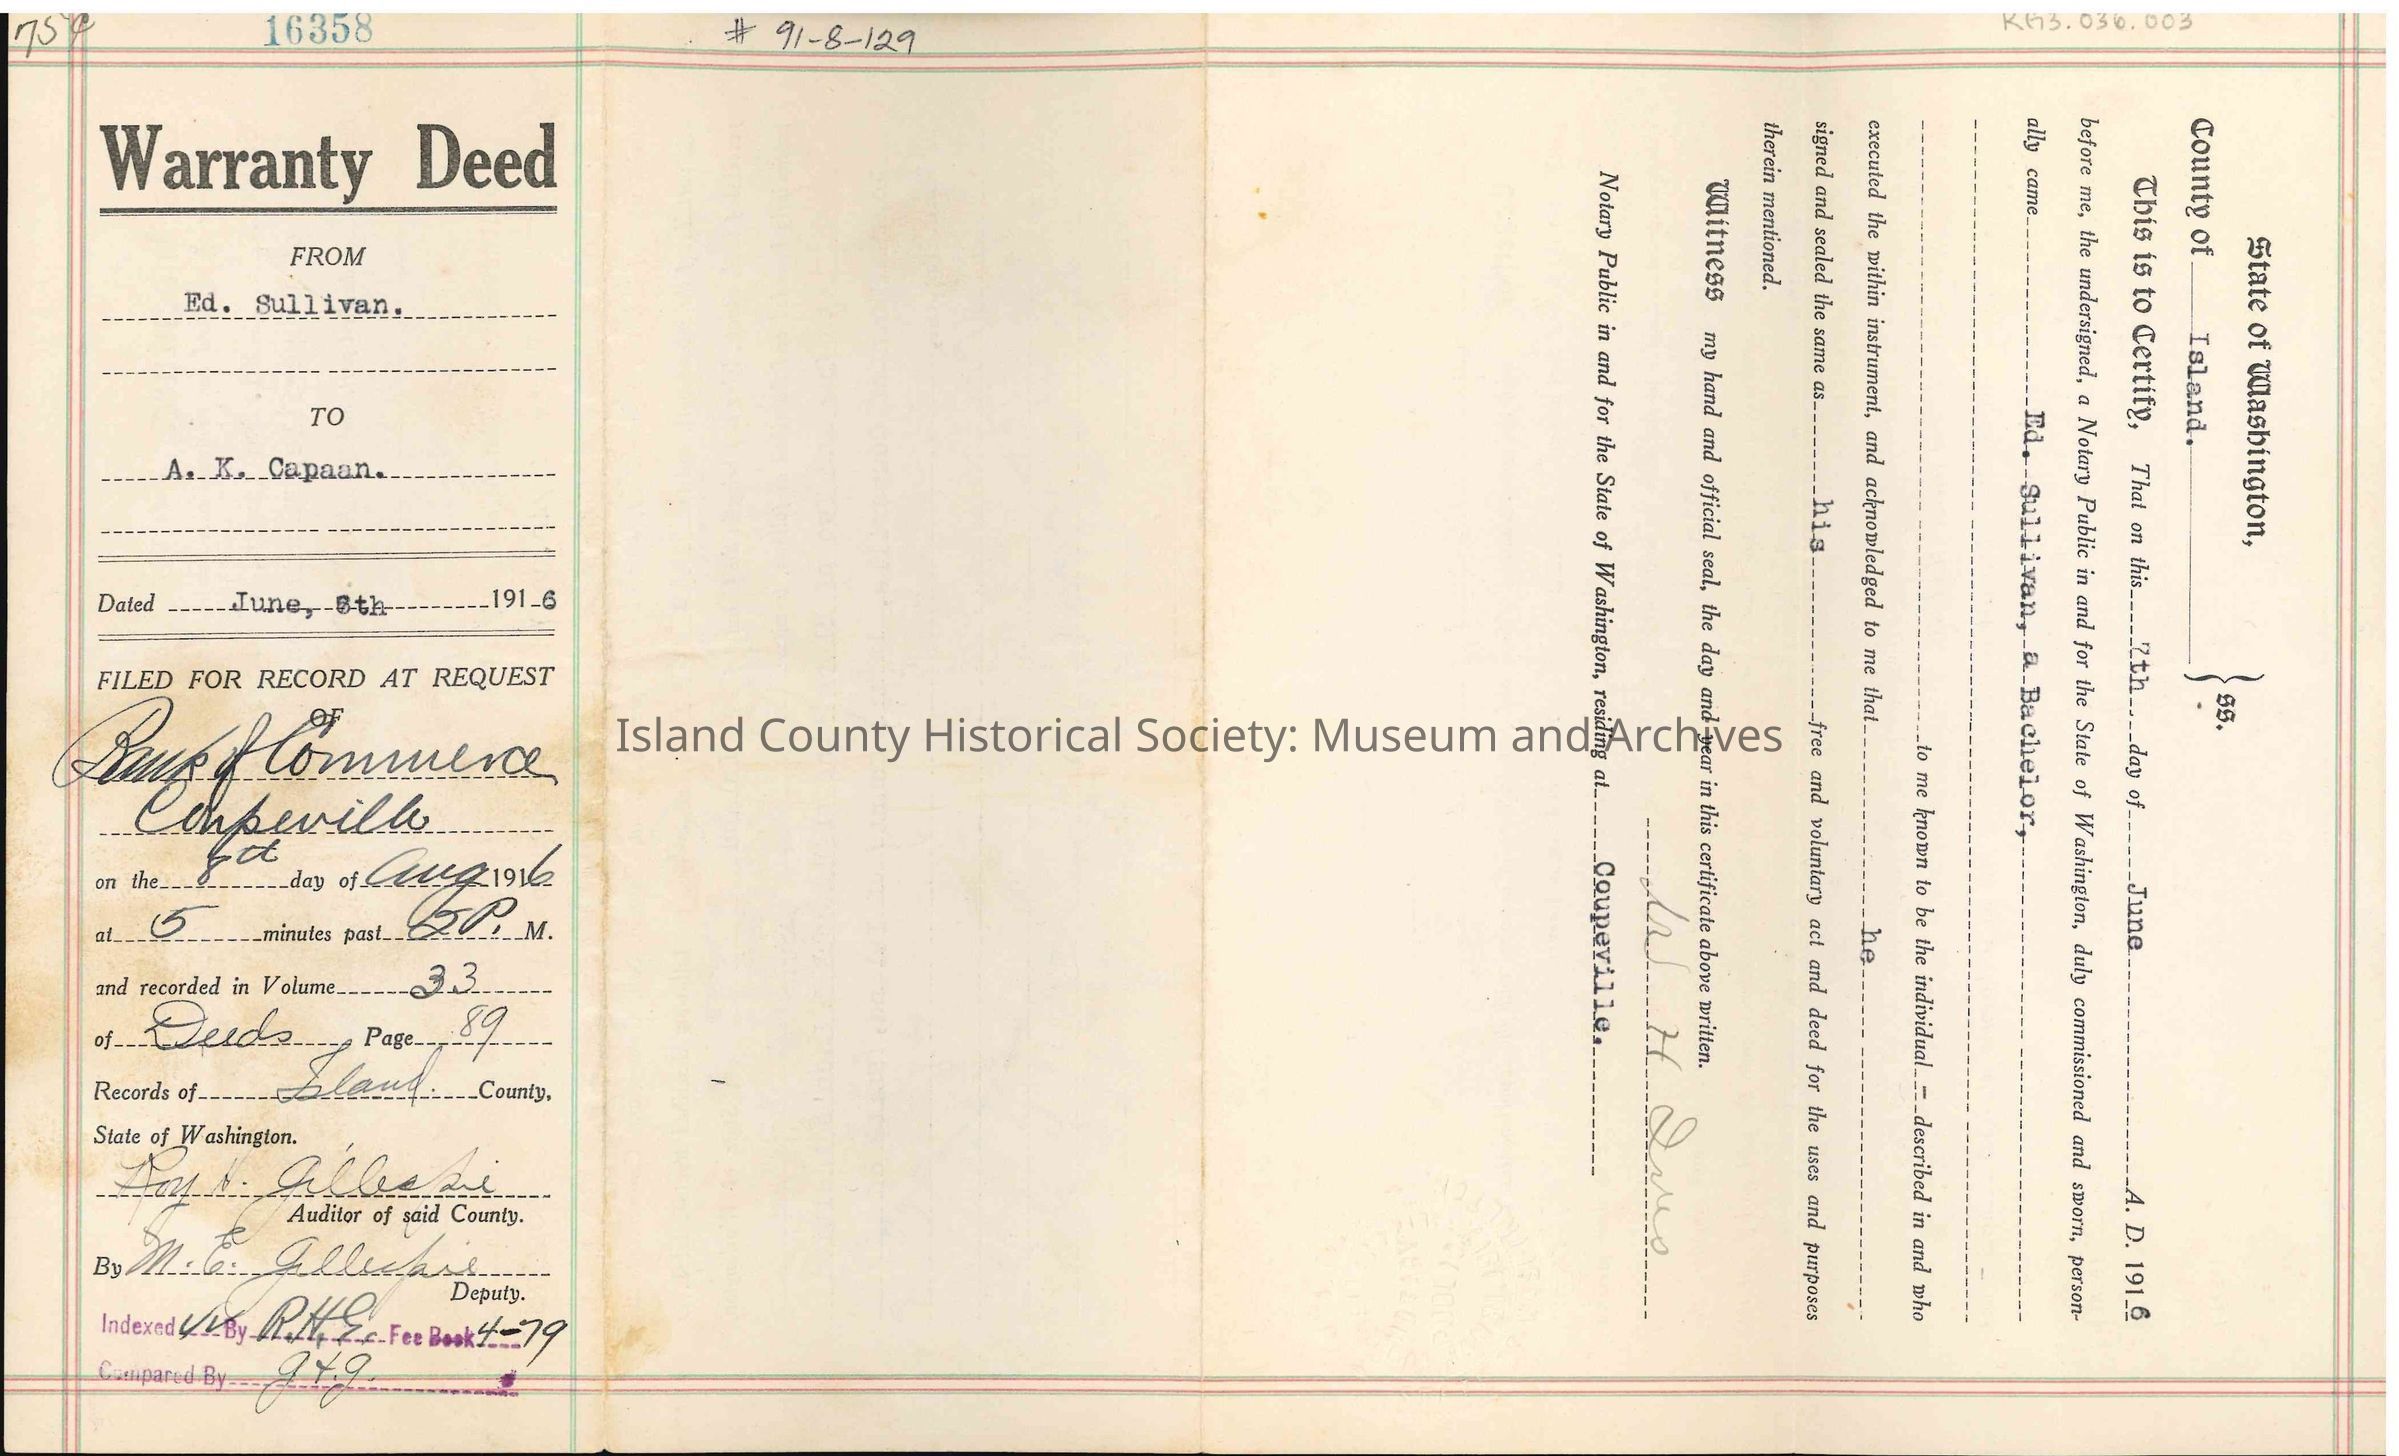 75¢
16358
# 91-8-129
RG3.036.003
Warranty Deed
FROM
Ed. Sullivan.
TO
A. K. Capaan.
Dated June, 8th 1916
FILED FOR RECORD AT REQUEST
OF
Bank of Commerce
Coupeville
on the 8th day of Aug 1916
at 5 minutes past 2 P. M.
and recorded in Volume 33
of Deeds, Page 89
Records of Island County,
State of Washington.
Roy H. Gillespie
Auditor of said County.
By M. E. Gillespie
Deputy.
Indexed By Fee Book 4-79
Compared By
Island County Historical Society: Museum and Archives
State of Washington,
County of Island. } ss.
This is to Certify, That on this 7th day of June A. D. 1916
before me, the undersigned, a Notary Public in and for the State of Washington, duly commissioned and sworn, person-
ally came Ed. Sullivan, a Bachelor,
to me known to be the individual - described in and who
executed the within instrument, and acknowledged to me that he
signed and sealed the same as his free and voluntary act and deed for the uses and purposes
therein mentioned.
Witness my hand and official seal, the day and year in this certificate above written.
Notary Public in and for the State of Washington, residing at Coupeville.